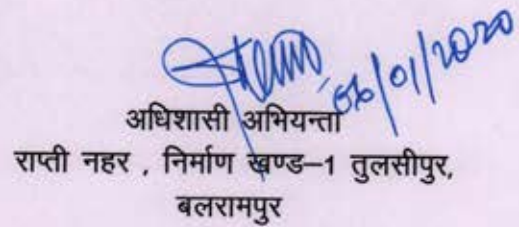 06/01/2020
अधिशासी अभियन्ता
राप्ती नहर , निर्माण खण्ड–1 तुलसीपुर,
बलरामपुर